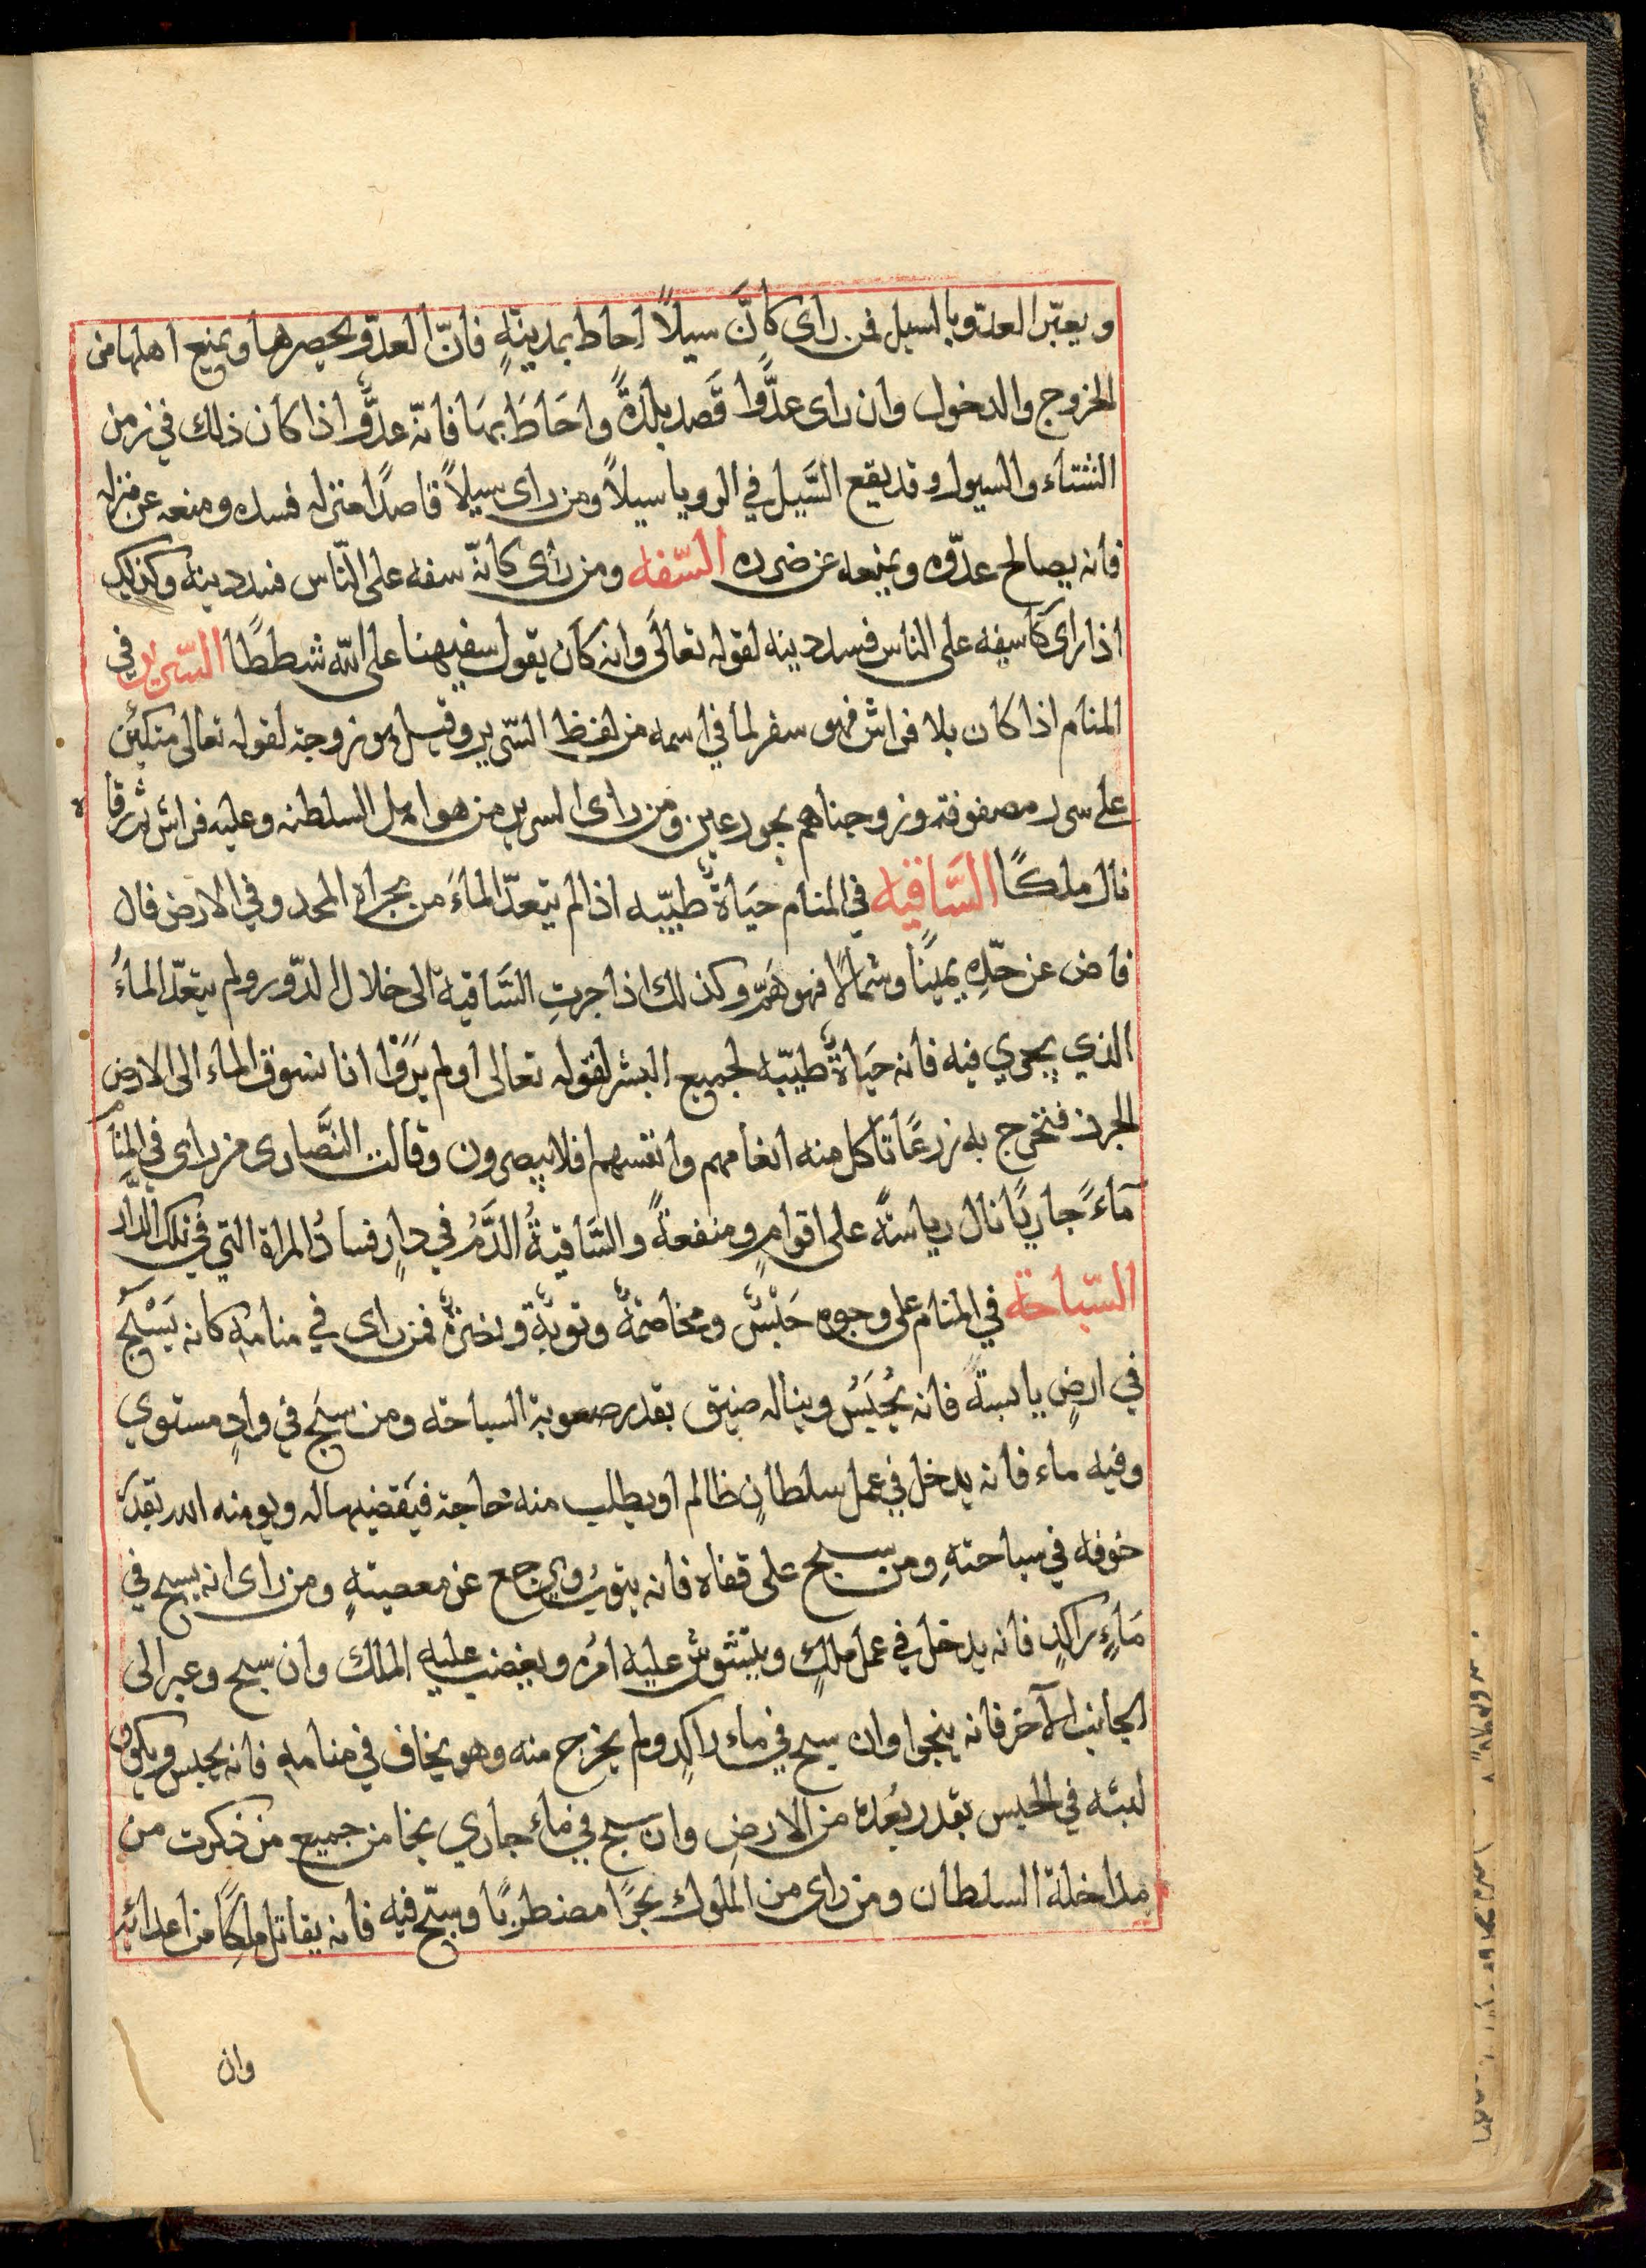 ويعبّر العدو بالسيل فمن راى كانّ سيلاً احاط بمدينةٍ فانّ العدّو يحصرها ويمنع اهلها من
الخروج والدخول وان راى عدًّوا قَصد بلدةً واحَاطَ بهَا فانّه عدوٌّ اذا كان ذلك في زمن
الشتاء والسيول وقد يقع السَّيل في الرويا سيلاً ومن راى سيلاً قاصدًا منزله فسده ومنعه عن منزله
فانه يصالح عدّوه ويمنعه عن ضرره السّفه ومن رأى كانّه سفه على النّاس فسد دينه وكذلك
اذا راى كا سفه على الناس فسد دينه لقوله تعالَى وانه كان يقول سفيهنا على اللّه شططًا السّرير في
المنام اذا كان بلا فراش فهو سفر لما في اسمه من لفظ السّرير وقيل هو زوجة لقوله تعالى متكئين
على سرر مصفوفة وزوجناهم بحور عين ومن راى السرير من هو اهل السلطنه وعليه فراش
نال ملكًا السَّاقيه في المنام حيَاةٌ طيّبه اذا لم يتعدّ الماءَ من مجراه المحدود في الارض فان
فاض عن حدّهِ يمينًا وشمالًا فهو هَمّ وكذلك اذا جرتِ السَّاقية الى خلال الدّور ولم يتعدّ الماءُ
الذي يجري فيه فانه حَيَاةٌ طيبّه لجميع البشر لقوله تعالى اولم يَرَوا انا نسوق الماء الى الارض
الجرز فنخرج به زرعًا تاكل منه انعامهم وانفسهم افلا يبصرون وقالت النَّصارى من راى في المنام
مآءً جاريًا نال رياسةً على اقوامٍ ومنفعةً والسَّاقيةُ الدَّمُ في دارٍ فسادُ المراة التي في تلك الدَّار
السّباحة في المنام على وجوه حَبْسٌ ومخاصمةٌ وتوبةٌ ونصرةٌ فمن راى في منامه كانه يَسْبَحُ
في ارضٍ يابسةً فانه يُحْبَسُ ويناله ضيق بقدر صعوبة السباحة ومن سبَح في وادٍ مستوي
وفيه ماء فانه يدخل في عمل سلطانٍ ظالم او يطلب منه حاجة فيَقضيها له ويومنه الله بقدر
خوفه في سباحتهِ ومن سبح على قفاه فانه يتوبُ ويرجع عن معصيتهٍ ومن راى انه يسبح في
مَاءٍ راكدٍ فانه يدخل في عمل ملكٍ ويتشوش عليه امرُه ويغضب عليه الملك وان سبح وعبر الى
الجانب الآخر فانه ينجوا وان سبح في ماء راكدٍ ولم يخرج منه وهو يخاف في منامه فانه يحبس ويكون
لبثه في الحبس بقدر بُعده من الارض وان سبح في ماء جاري نجا من جميع من ذكرت من
مداخلة السلطان ومن راى من الملوك بحرًا مضطربًا وسبّح فيه فانه يقاتل ملكًا من اعدائه
وان